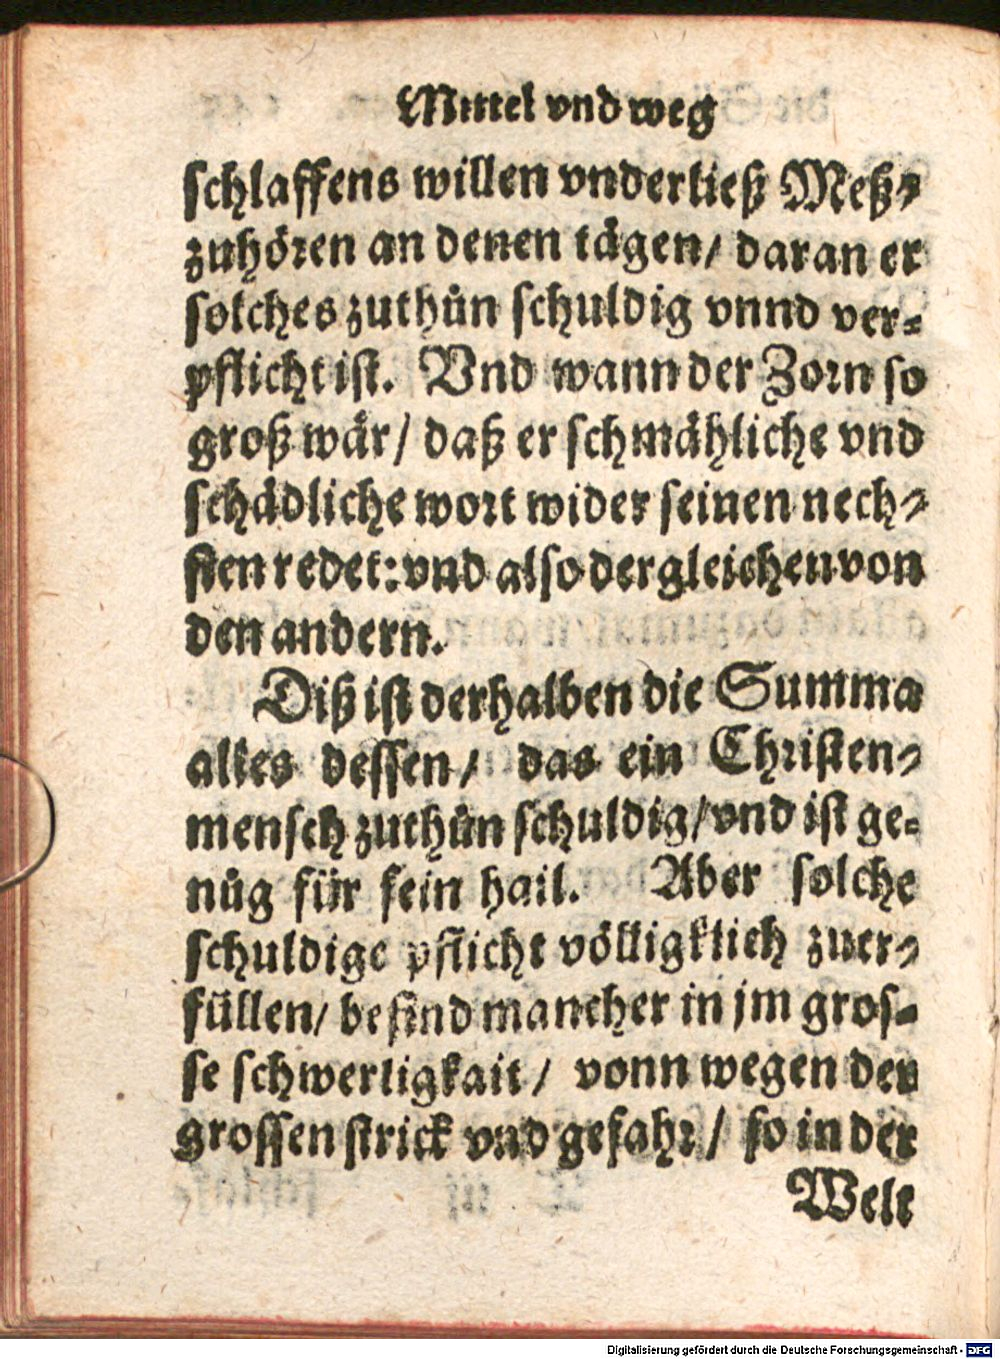 Mittel vnd weg
schlaffens willen vnderließ Meß⸗
zuhören an denen tägen/ daran er
solches zuthůn schuldig vnnd ver⸗
pflicht ist. Vnd wann der Zorn so
groß wär/ daß er schmähliche vnd
schädliche wort wider seinen nech⸗
sten redet: vnd also dergleichen von
den andern.
Diß ist derhalben die Summa
alles dessen/ das ein Christen⸗
mensch zuthůn schuldig/ vnd ist ge⸗
nůg für sein hail. Aber solche
schuldige pflicht völligklich zuer⸗
füllen/ befind mancher in jm gros⸗
se schwerligkait/ vonn wegen der
grossen strick vnd gefahr/ so in der
Welt
Digitalisierung gefördert durch die Deutsche Forschungsgemeinschaft - DFG